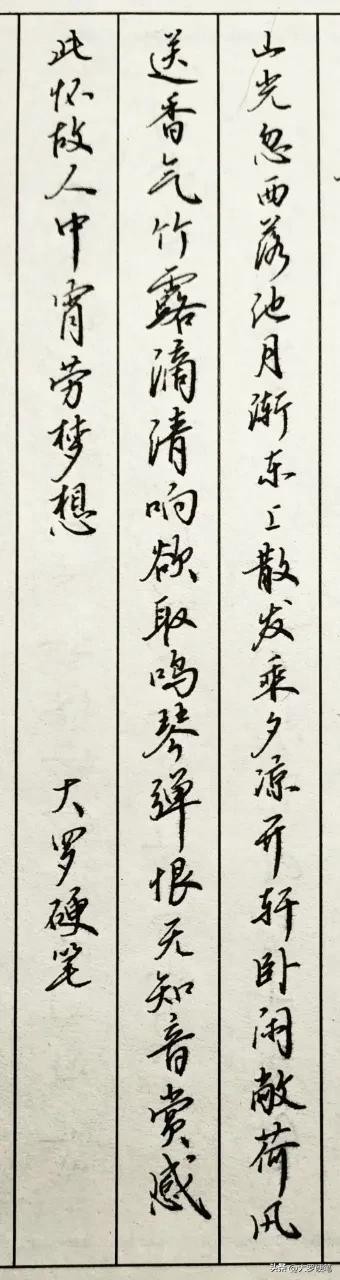 山光忽西落池月渐东上散发乘夕凉开轩卧闲敞荷风
送香气竹露滴清响欲取鸣琴弹恨无知音赏感
此怀故人中宵劳梦想
大罗硬笔
头条@大罗硬笔